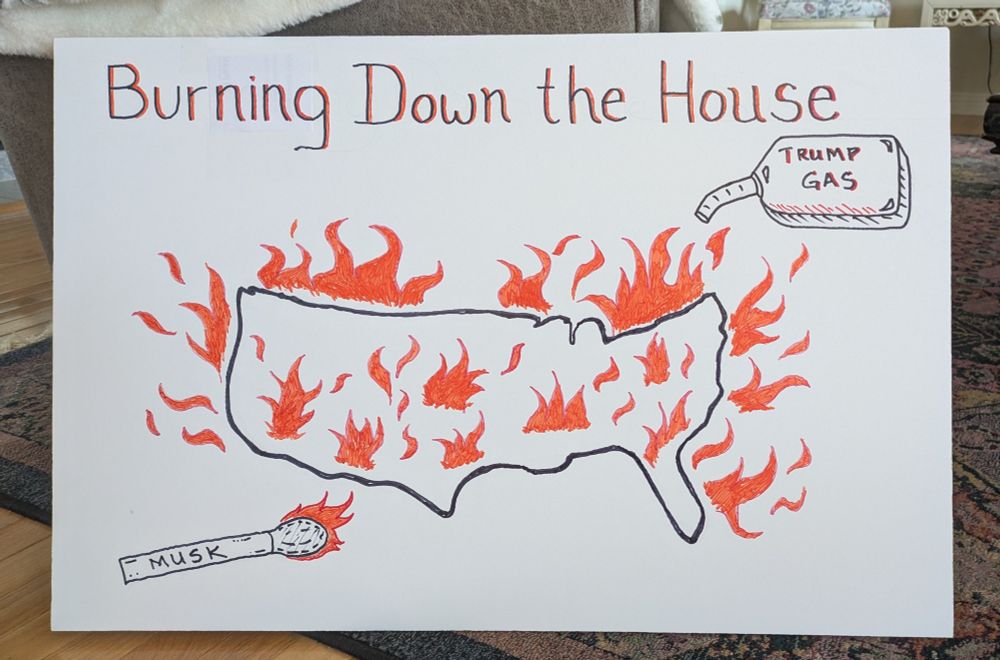 Burning Down the House
TRUMP
GAS
MUSK